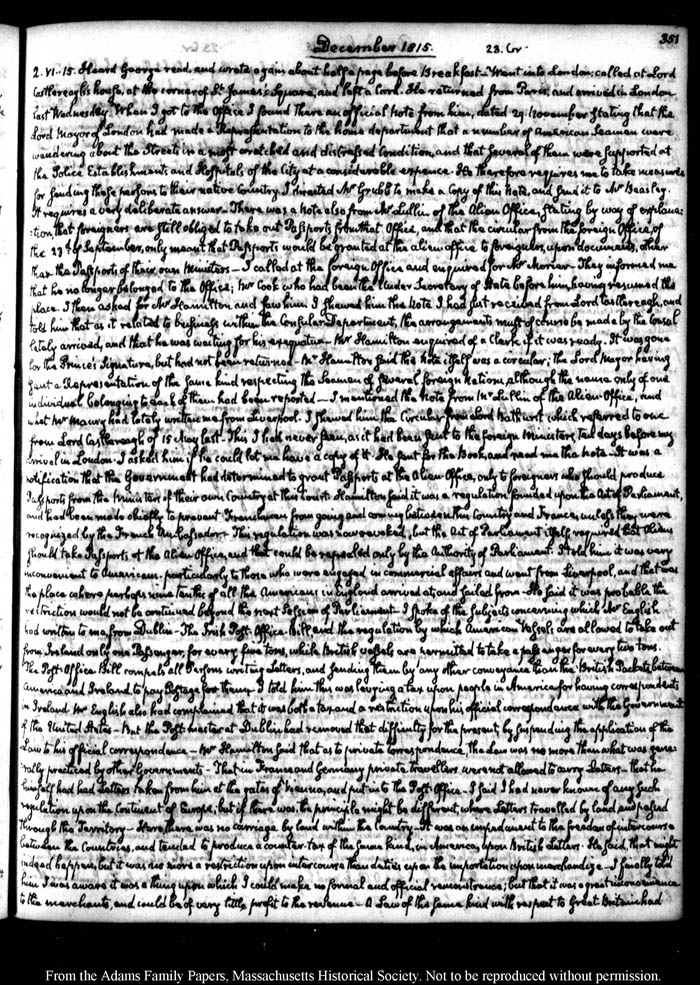 351
December 1815. 23. Gr.
2. VI..15. Heard George read, and wrote again about half a page before Breakfast. Went into London; called at Lord
Castlereagh's house, at the corner of St. James's Square, and left a Card. He returned from Paris, and arrived in London
last Wednesday. When I got to the Office I found there an official Note from him, dated 29. November stating that the
Lord Mayor of London had made a Representation to the home department that a number of American Seamen were
wandering about the Streets in a most wretched and distressed condition, and that several of them were supported at
the Police Establishments and Hospitals of the City at a considerable expence. He therefore requires me to take measures
for sending these persons to their native Country. I directed Mr. Grubb to make a Copy of this Note, and send it to Mr. Beasley.
It requires a very deliberate answer. There was a note also from Mr. Lullin of the Alien Office, stating by way of explana-
:tion, that foreigners are still obliged to take out Passports from that Office, and that the circular from the foreign Office, of
the 23d. of September, only meant that Passports would be granted at the alien office to foreigners, upon documents, other
than the Passports of their own Ministers — I called at the foreign Office and enquired for Mr. Morier. They informed me
that he no longer belonged to the Office; Mr. Cook who had been the Under Secretary of State before him, having resumed the
place. I then asked for Mr. Hamilton and saw him. I shewed him the Note I had just received from Lord Castlereagh, and
told him that as it related to business within the Consular Department, the arrangements must of course be made by the Consul
lately arrived, and that he was waiting for his exequatur — Mr. Hamilton enquired of a Clerk if it was ready. It was gone
for the Prince's Signature, but had not been returned — Mr. Hamilton said the note itself was a circular; the Lord Mayor having
sent a Representation of the same kind respecting the Seamen of several foreign Nations, although the name only of one
individual belonging to each of them had been reported — I mentioned the Note from Mr. Lullin of the Alien Office, and
what Mr. Maury had lately written me from Liverpool. I shewed him the Circular from Lord Bathurst which referred to one
from Lord Castlereagh of 15 May last. This I had never seen, as it had been sent to the foreign Ministers, ten days before my
arrival in London. I asked him if he could let me have a copy of it. He sent for the Book, and read me the Note. It was a
notification that the Government had determined to grant Passports at the Alien Office, only to foreigners who should produce
Passports from the Minister of their own Country at this Court. Hamilton said it was a regulation founded upon the Act of Parliament,
and had been made chiefly to prevent Frenchmen from going and coming between this Country and France, unless they were
recognized by the French Ambassador. This regulation was now revoked, but the Act of Parliament itself required that Aliens
should take Passports of the Alien Office, and that could be repealed only by the Authority of Parliament. I told him it was very
inconvenient to Americans, particularly to those who were engaged in commercial affairs and went from Liverpool, and that was
the place where perhaps nine tenths of all the Americans in England arrived at and sailed from. He said it was probable the
restriction would not be continued beyond the next Session of Parliament. I spoke of the subjects concerning which Mr. English
had written to me from Dublin — The Irish Post-Office Bill and the regulation by which American Vessels are allowed to take out
from Ireland only one Passenger, for every five tons, while British vessels are permitted to take a passenger for every two tons.
The Post-Office Bill compels all Persons writing Letters, and sending them by any other conveyance than the British Packets between
America and Ireland to pay Postage for them. I told him this was levying a tax upon people in America for having correspondents
in Ireland. Mr. English also had complained that it was both a tax and a restriction upon his official correspondence with the Government
of the United States — But the Post-master at Dublin had removed that difficulty for the present, by suspending the application of the
Law to his official correspondence — Mr. Hamilton said that as to private correspondence, the Law was no more than what was gene-
:rally practiced by other Governments — That in France and Germany private travellers were not allowed to carry Letters — that he
himself had had Letters taken from him at the gates of Vienna, and put into the Post-Office. I said I had never known of any such
regulation upon the Continent of Europe; but if there was, the principle might be different, where Letters travelled by land and passed
through the Territory — Here, there was no carriage by land within the Country — It was an impediment to the freedom of intercourse
between the Countries, and tended to produce a counter-tax of the same kind, in America, upon British Letters. He said, that might
indeed happen, but it was no more a restriction upon intercourse than duties upon the importation upon merchandize — I finally told
him I was aware it was a thing upon which I could make no formal and official remonstrance; but that it was a great inconvenience
to the merchants, and could be of very little profit to the revenue — A Law of the same kind with respect to Great Britain had
From the Adams Family Papers, Massachusetts Historical Society. Not to be reproduced without permission.